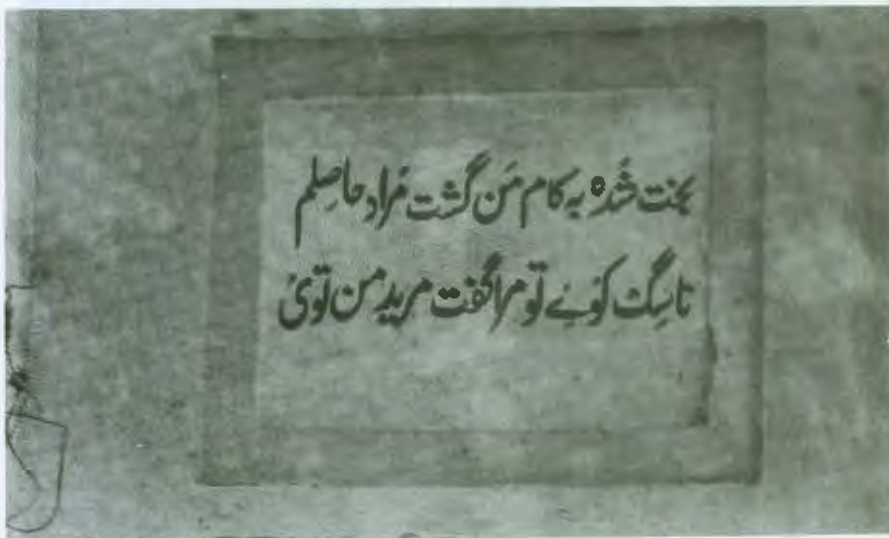 بخت شُدہ بہ کام مَن گشت مُراد حاصِلم
تا سِگِ کوُۓ تو مرا گفت مریدِ من توئ